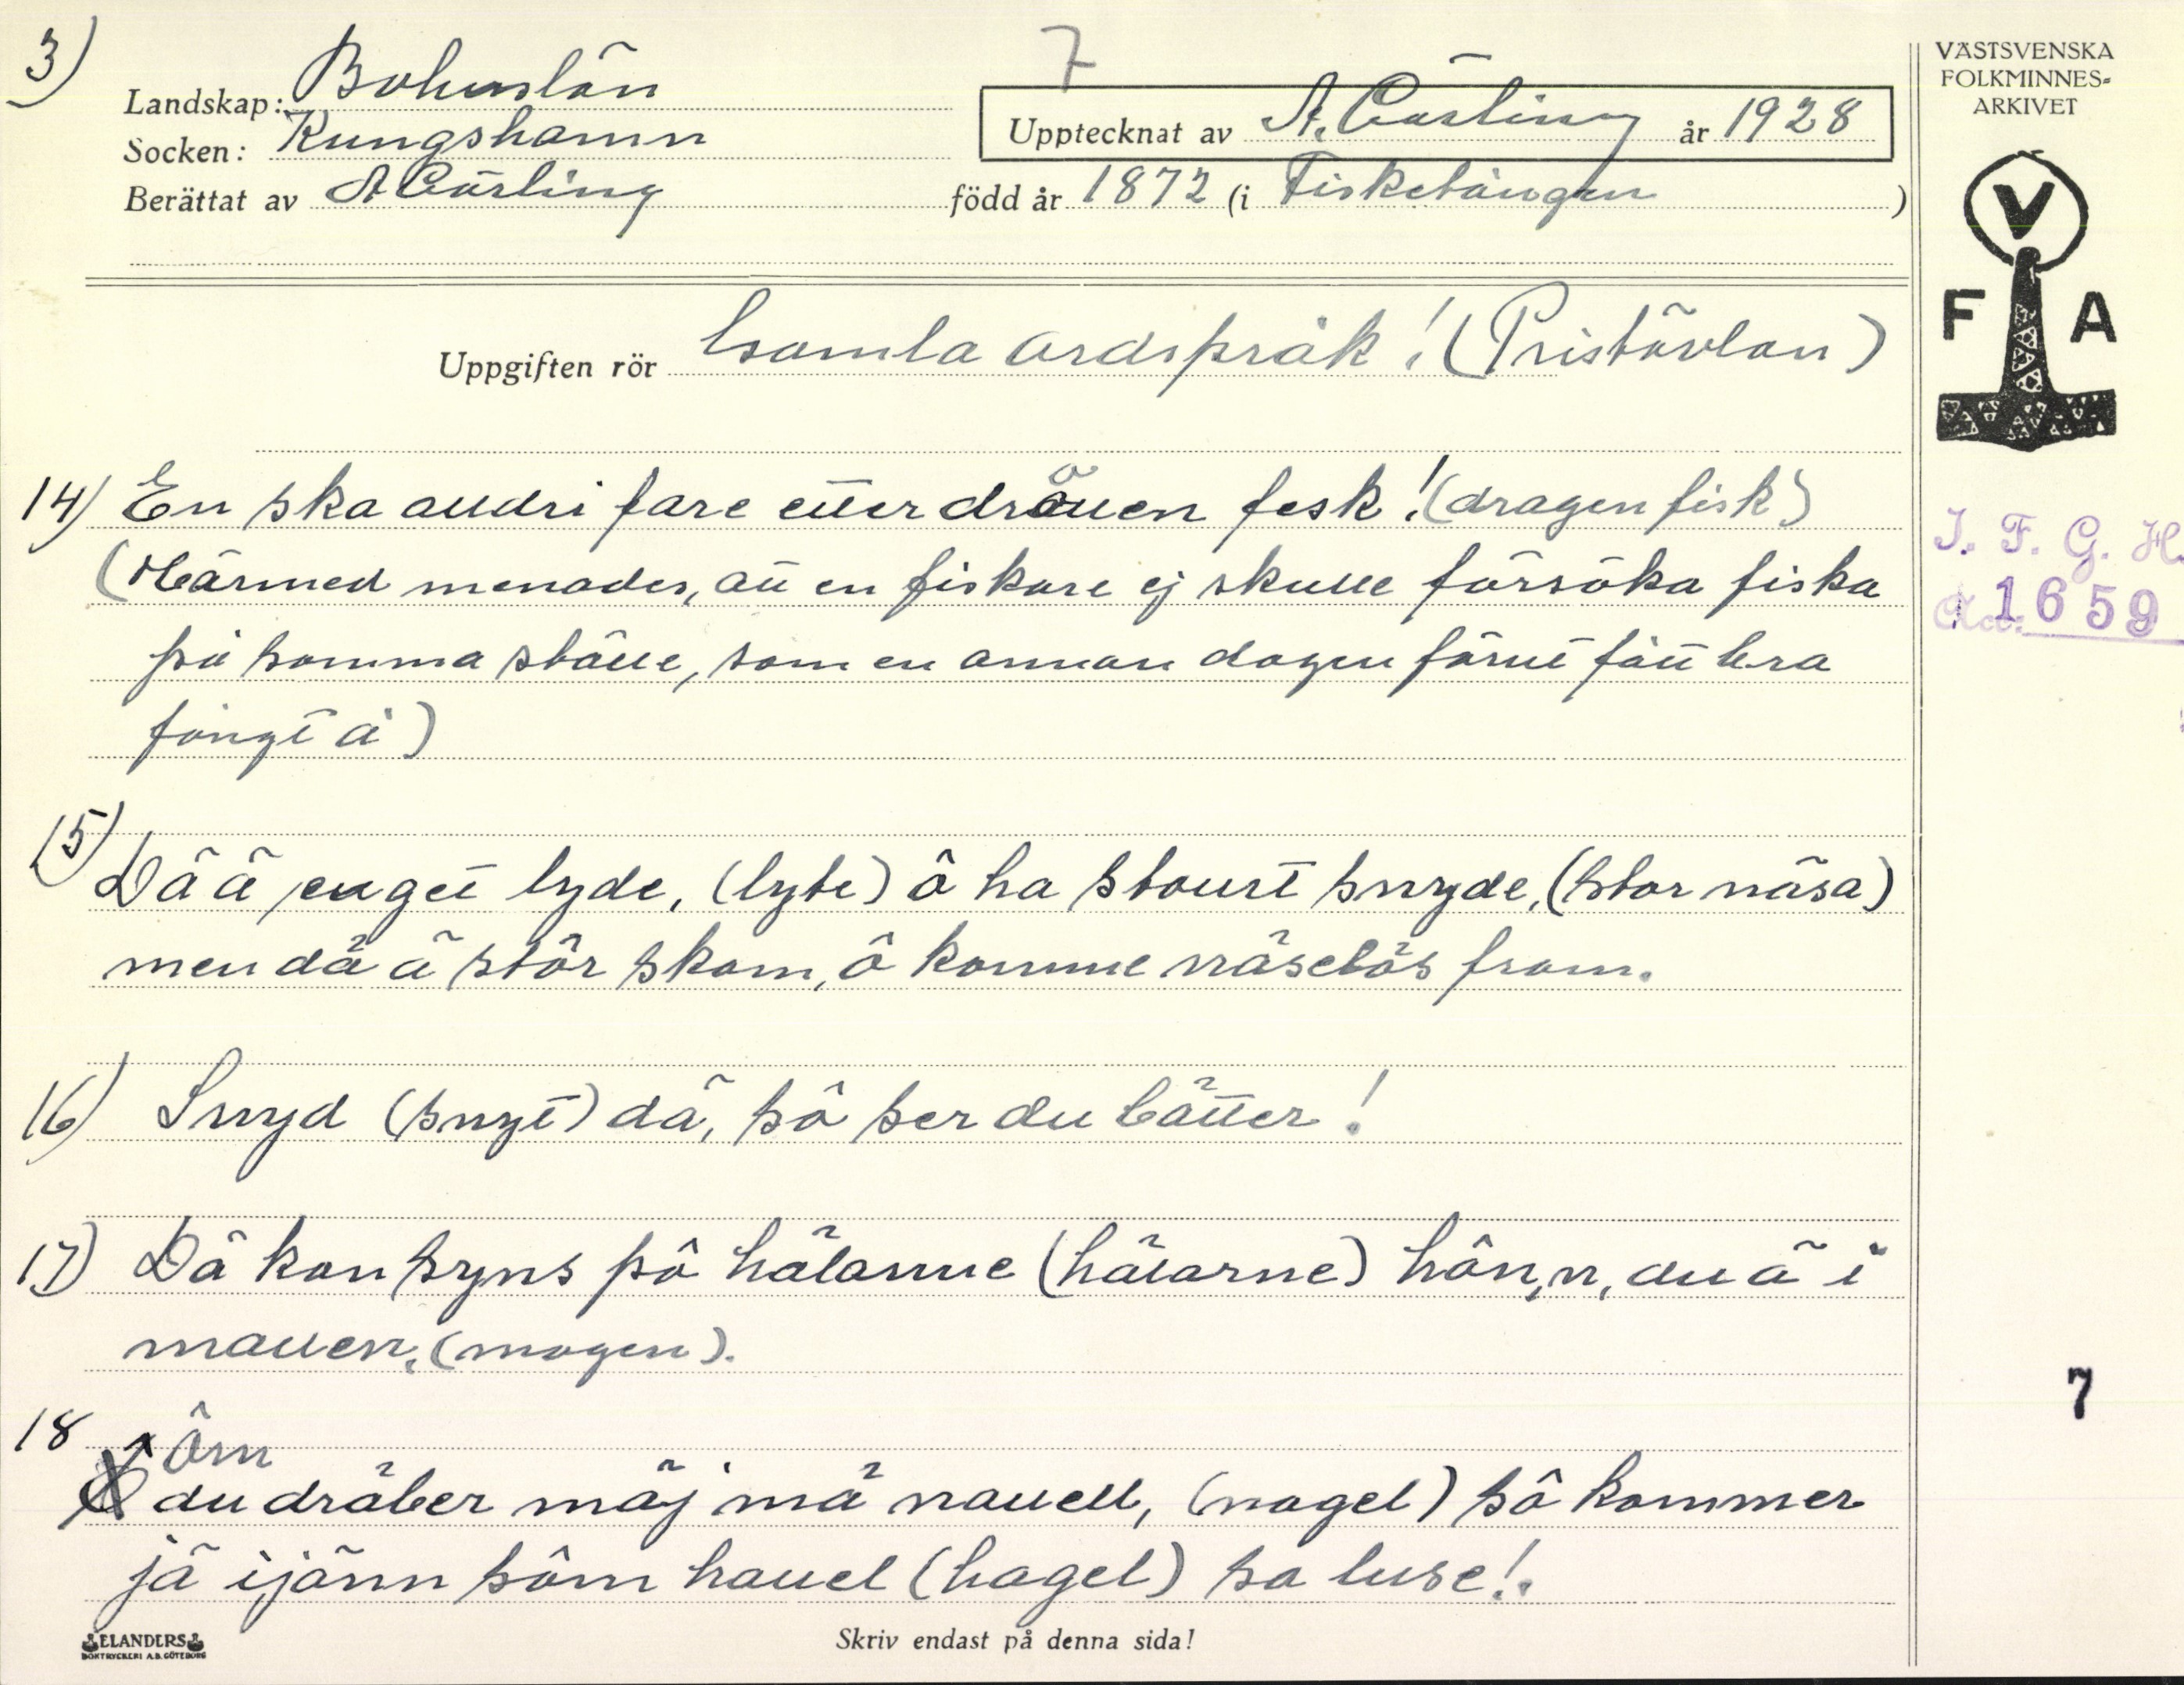 3)
7
VÄSTSVENSKA
FOLKMINNES-
ARKIVET
Landskap: Bohuslän
Socken: Kungshamn
Upptecknat av A. Cärling år 1928
Berättat av A Cärling född år 1872 (i Fisketången)
V
F A
Uppgiften rör Gamla ordspråk! (Pristävlan)
14) En ska alldri fare etter dräuen fesk! (dragen fisk)
(Härmed menades, att en fiskare ej skulle försöka fiska
på samma ställe, som en annan dagen förut fått bra
fångt å)
I. F. G. H.
Acc. 1659
15) Dä ä enget lyde, (lyte) ô ha stourt snyde, (stor näsa)
men dä ä stôr skam, ô komme näselös fram.
16) Snyd (snyt) dä, sô ser du bätter!
17) Dä kan syns pô hälanne (hälarne) hôn,n, du ä i
mauen. (magen).
7
18 Ôm
du dräber mäj mä nauell, (nagel) sô kommer
jä ijänn sôm hauel (hagel) sa luse!.
ELANDERS
BOKTRYCKERI A.B. GÖTEBORG
Skriv endast på denna sida!